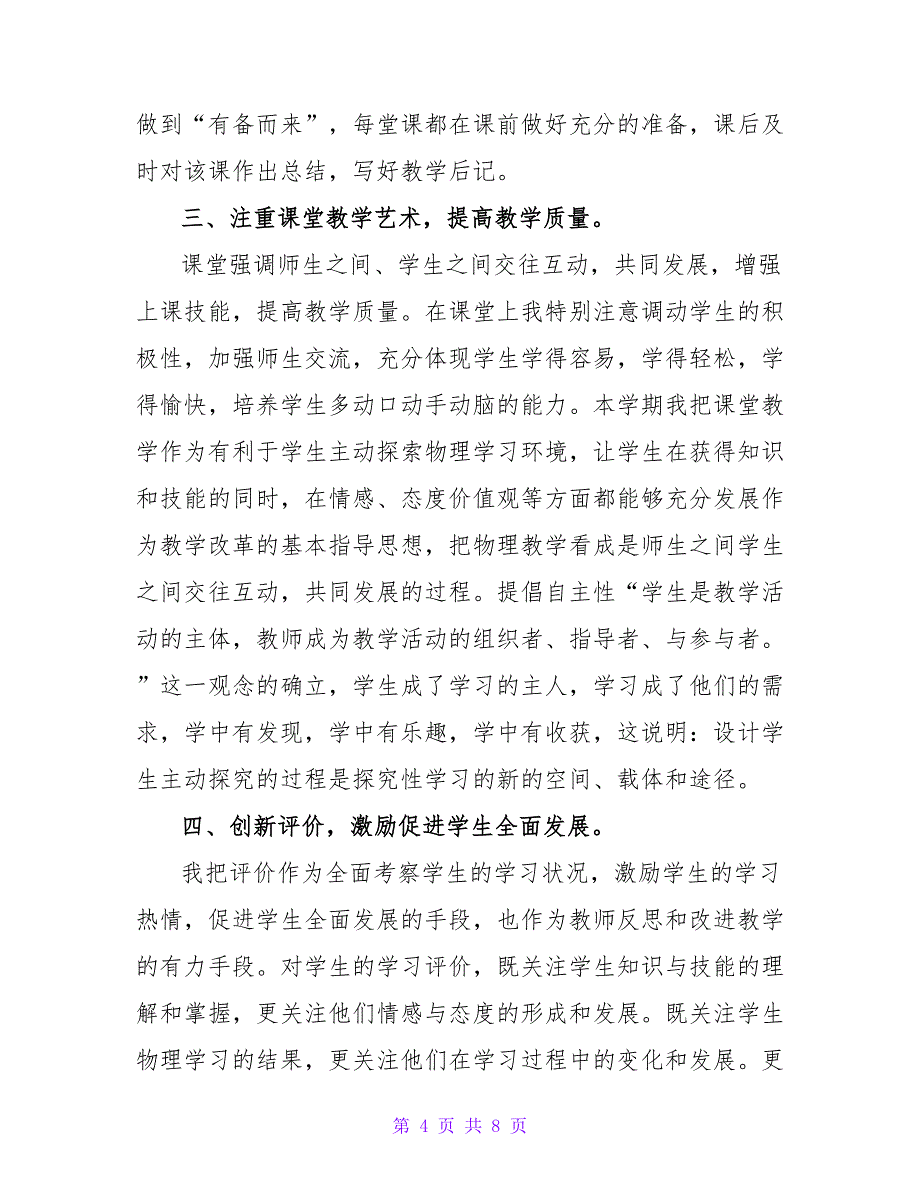 做到“有备而来”，每堂课都在课前做好充分的准备，课后及
时对该课作出总结，写好教学后记。
三、注重课堂教学艺术，提高教学质量。
课堂强调师生之间、学生之间交往互动，共同发展，增强
上课技能，提高教学质量。在课堂上我特别注意调动学生的积
极性，加强师生交流，充分体现学生学得容易，学得轻松，学
得愉快，培养学生多动口动手动脑的能力。本学期我把课堂教
学作为有利于学生主动探索物理学习环境，让学生在获得知识
和技能的同时，在情感、态度价值观等方面都能够充分发展作
为教学改革的基本指导思想，把物理教学看成是师生之间学生
之间交往互动，共同发展的过程。提倡自主性“学生是教学活
动的主体，教师成为教学活动的组织者、指导者、与参与者。
”这一观念的确立，学生成了学习的主人，学习成了他们的需
求，学中有发现，学中有乐趣，学中有收获，这说明：设计学
生主动探究的过程是探究性学习的新的空间、载体和途径。
四、创新评价，激励促进学生全面发展。
我把评价作为全面考察学生的学习状况，激励学生的学习
热情，促进学生全面发展的手段，也作为教师反思和改进教学
的有力手段。对学生的学习评价，既关注学生知识与技能的理
解和掌握，更关注他们情感与态度的形成和发展。既关注学生
物理学习的结果，更关注他们在学习过程中的变化和发展。更
第 4 页 共 8 页